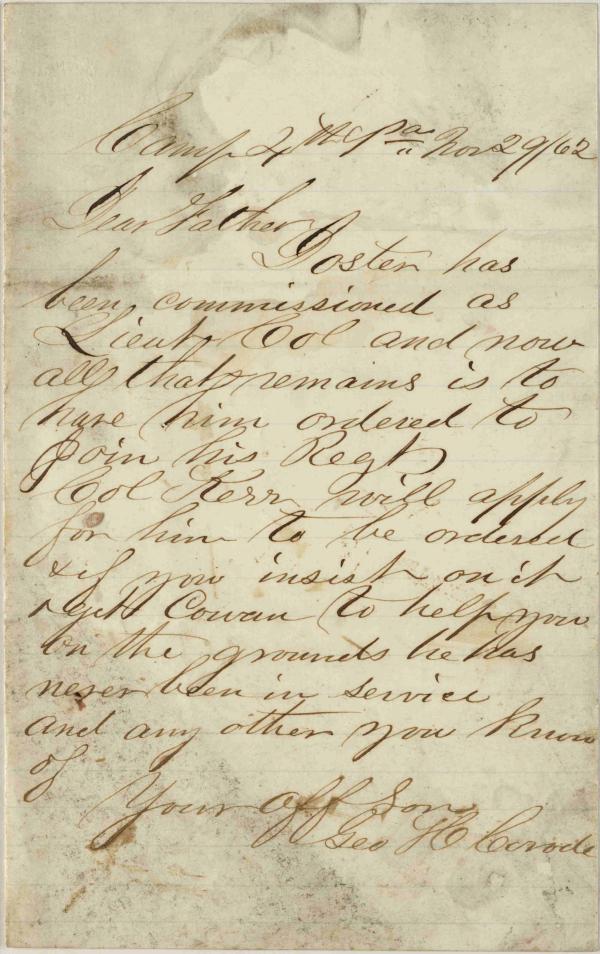 Camp 4th Pa Nov 29/62
Dear Father
Doster has
been commissioned as
Lieut Col and now
all that remains is to
have him ordered to
join his Regt
Col Kerr will apply
for him to be ordered
& if you insist on it
& get Cowan to help you
on the grounds he has
never been in service
and any other you know
of
Your aff Son
Geo H Covode